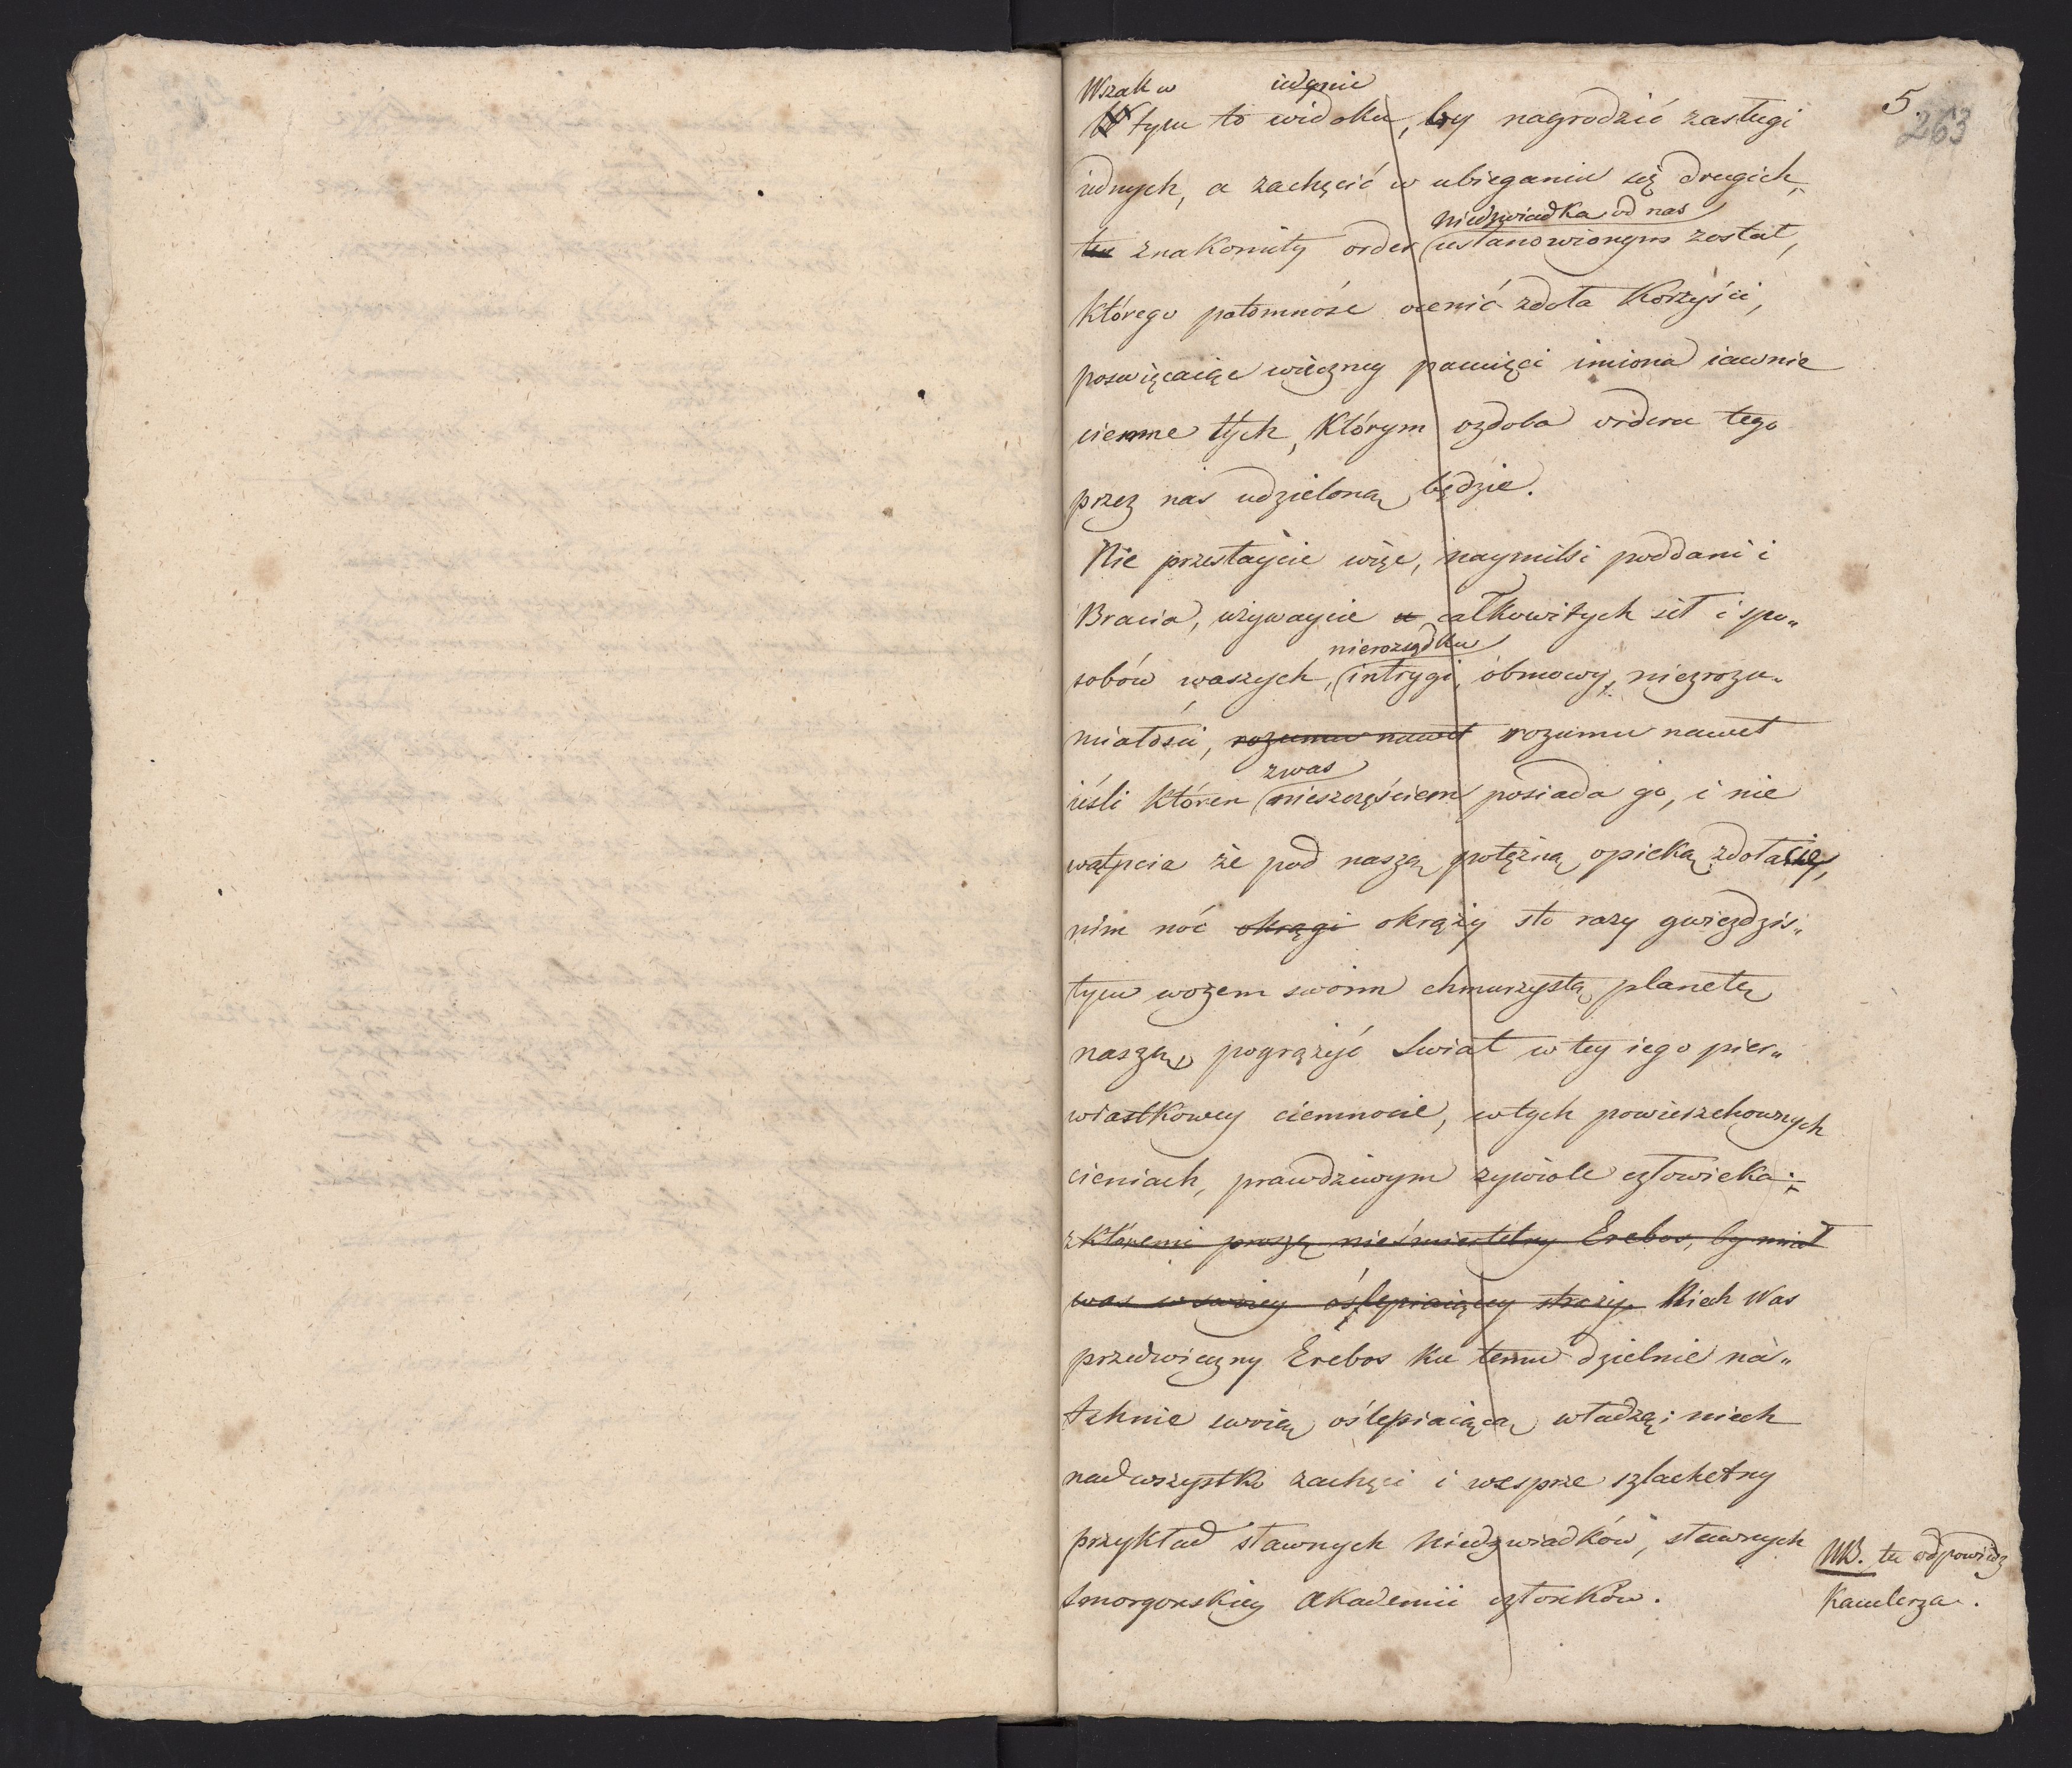 5.
263
Wszak w iedynie
W tym to widoku, by nagrodzić zasługi
iednych, a zachęcić w ubieganiu się drugich,
niedzwiadka od nas
ten znakomity order ustanowionym został,
którego potomność ocenić zdoła korzyści,
poswięcaiąc wieczney pamięci imiona iawnie
ciemne tych, którym ozdoba orderu tego
przez nas udzieloną będzie.
Nie przestaycie więc, naymilsi poddani i
Bracia, używaycie całkowitych sił i spo„
nierozsądku
sobów waszych, intrygi, obmowy, niezrozu„
miałości, rozumu nawet rozumu nawet
z was
ieśli któren nieszczęściem posiada go, i nie
wątpcia że pod naszą potężną opieką zdołacie,
nim noć okrągi okrąży sto razy gwiezdzis„
tym wozem swoim chmurzystą planetę
naszą, pogrążyć Swiat w tey iego pier„
wiastkowey ciemnocie, w tych powierzchownych
cieniach, prawdziwym zywiole człowieka.
z któremi proszę nieśmiertelny Erebos, by miał
was w swoiey oślepiaiącey straży. Niech Was
przedwieczny Erebos ku temu dzielnie na„
tchnie swoią oślepiaiącą władzą; niech
nadwszystko zachęci i wesprze szlachetny
przykład sławnych Niedzwiadków, sławnych
Smorgonskiey Akademii członków.
NB. tu odpowiedz
Kanclerza.